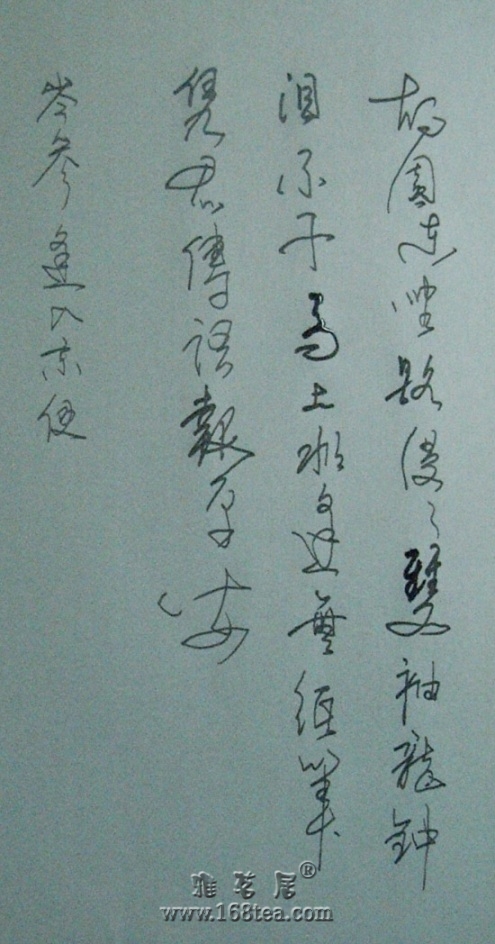 故園东望路漫々雙袖龍鐘
泪不干馬上相逢無紙筆
凭君傳語報平安
岑參逢入京使
雅茗居®
www.168tea.com